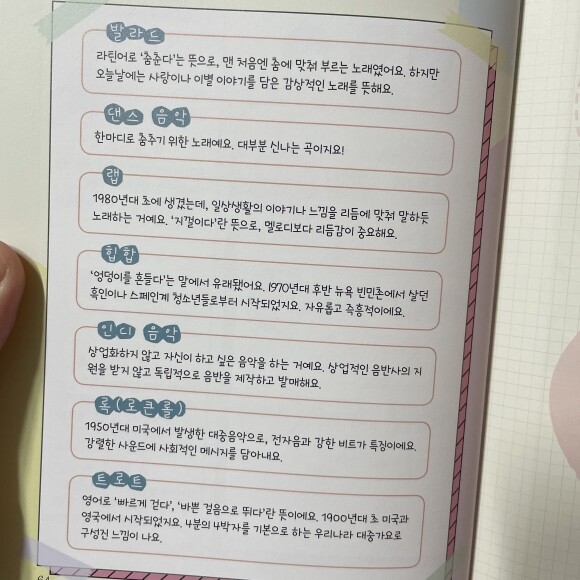 발라드
라틴어로 '춤춘다'는 뜻으로, 맨 처음엔 춤에 맞춰 부르는 노래였어요. 하지만
오늘날에는 사랑이나 이별 이야기를 담은 감상적인 노래를 뜻해요.
댄스 음악
한마디로 춤추기 위한 노래예요. 대부분 신나는 곡이지요!
랩
1980년대 초에 생겼는데, 일상생활의 이야기나 느낌을 리듬에 맞춰 말하듯
노래하는 거예요. '지껄이다'란 뜻으로, 멜로디보다 리듬감이 중요해요.
힙합
'엉덩이를 흔들다'는 말에서 유래됐어요. 1970년대 후반 뉴욕 빈민촌에서 살던
흑인이나 스페인계 청소년들로부터 시작되었지요. 자유롭고 즉흥적이에요.
인디 음악
상업화하지 않고 자신이 하고 싶은 음악을 하는 거예요. 상업적인 음반사의 지
원을 받지 않고 독립적으로 음반을 제작하고 발매해요.
록(로큰롤)
1950년대 미국에서 발생한 대중음악으로, 전자음과 강한 비트가 특징이에요.
강렬한 사운드에 사회적인 메시지를 담아내요.
트로트
영어로 '빠르게 걷다', '바쁜 걸음으로 뛰다'란 뜻이에요. 1900년대 초 미국과
영국에서 시작되었지요. 4분의 4박자를 기본으로 하는 우리나라 대중가요로
구성진 느낌이 나요.